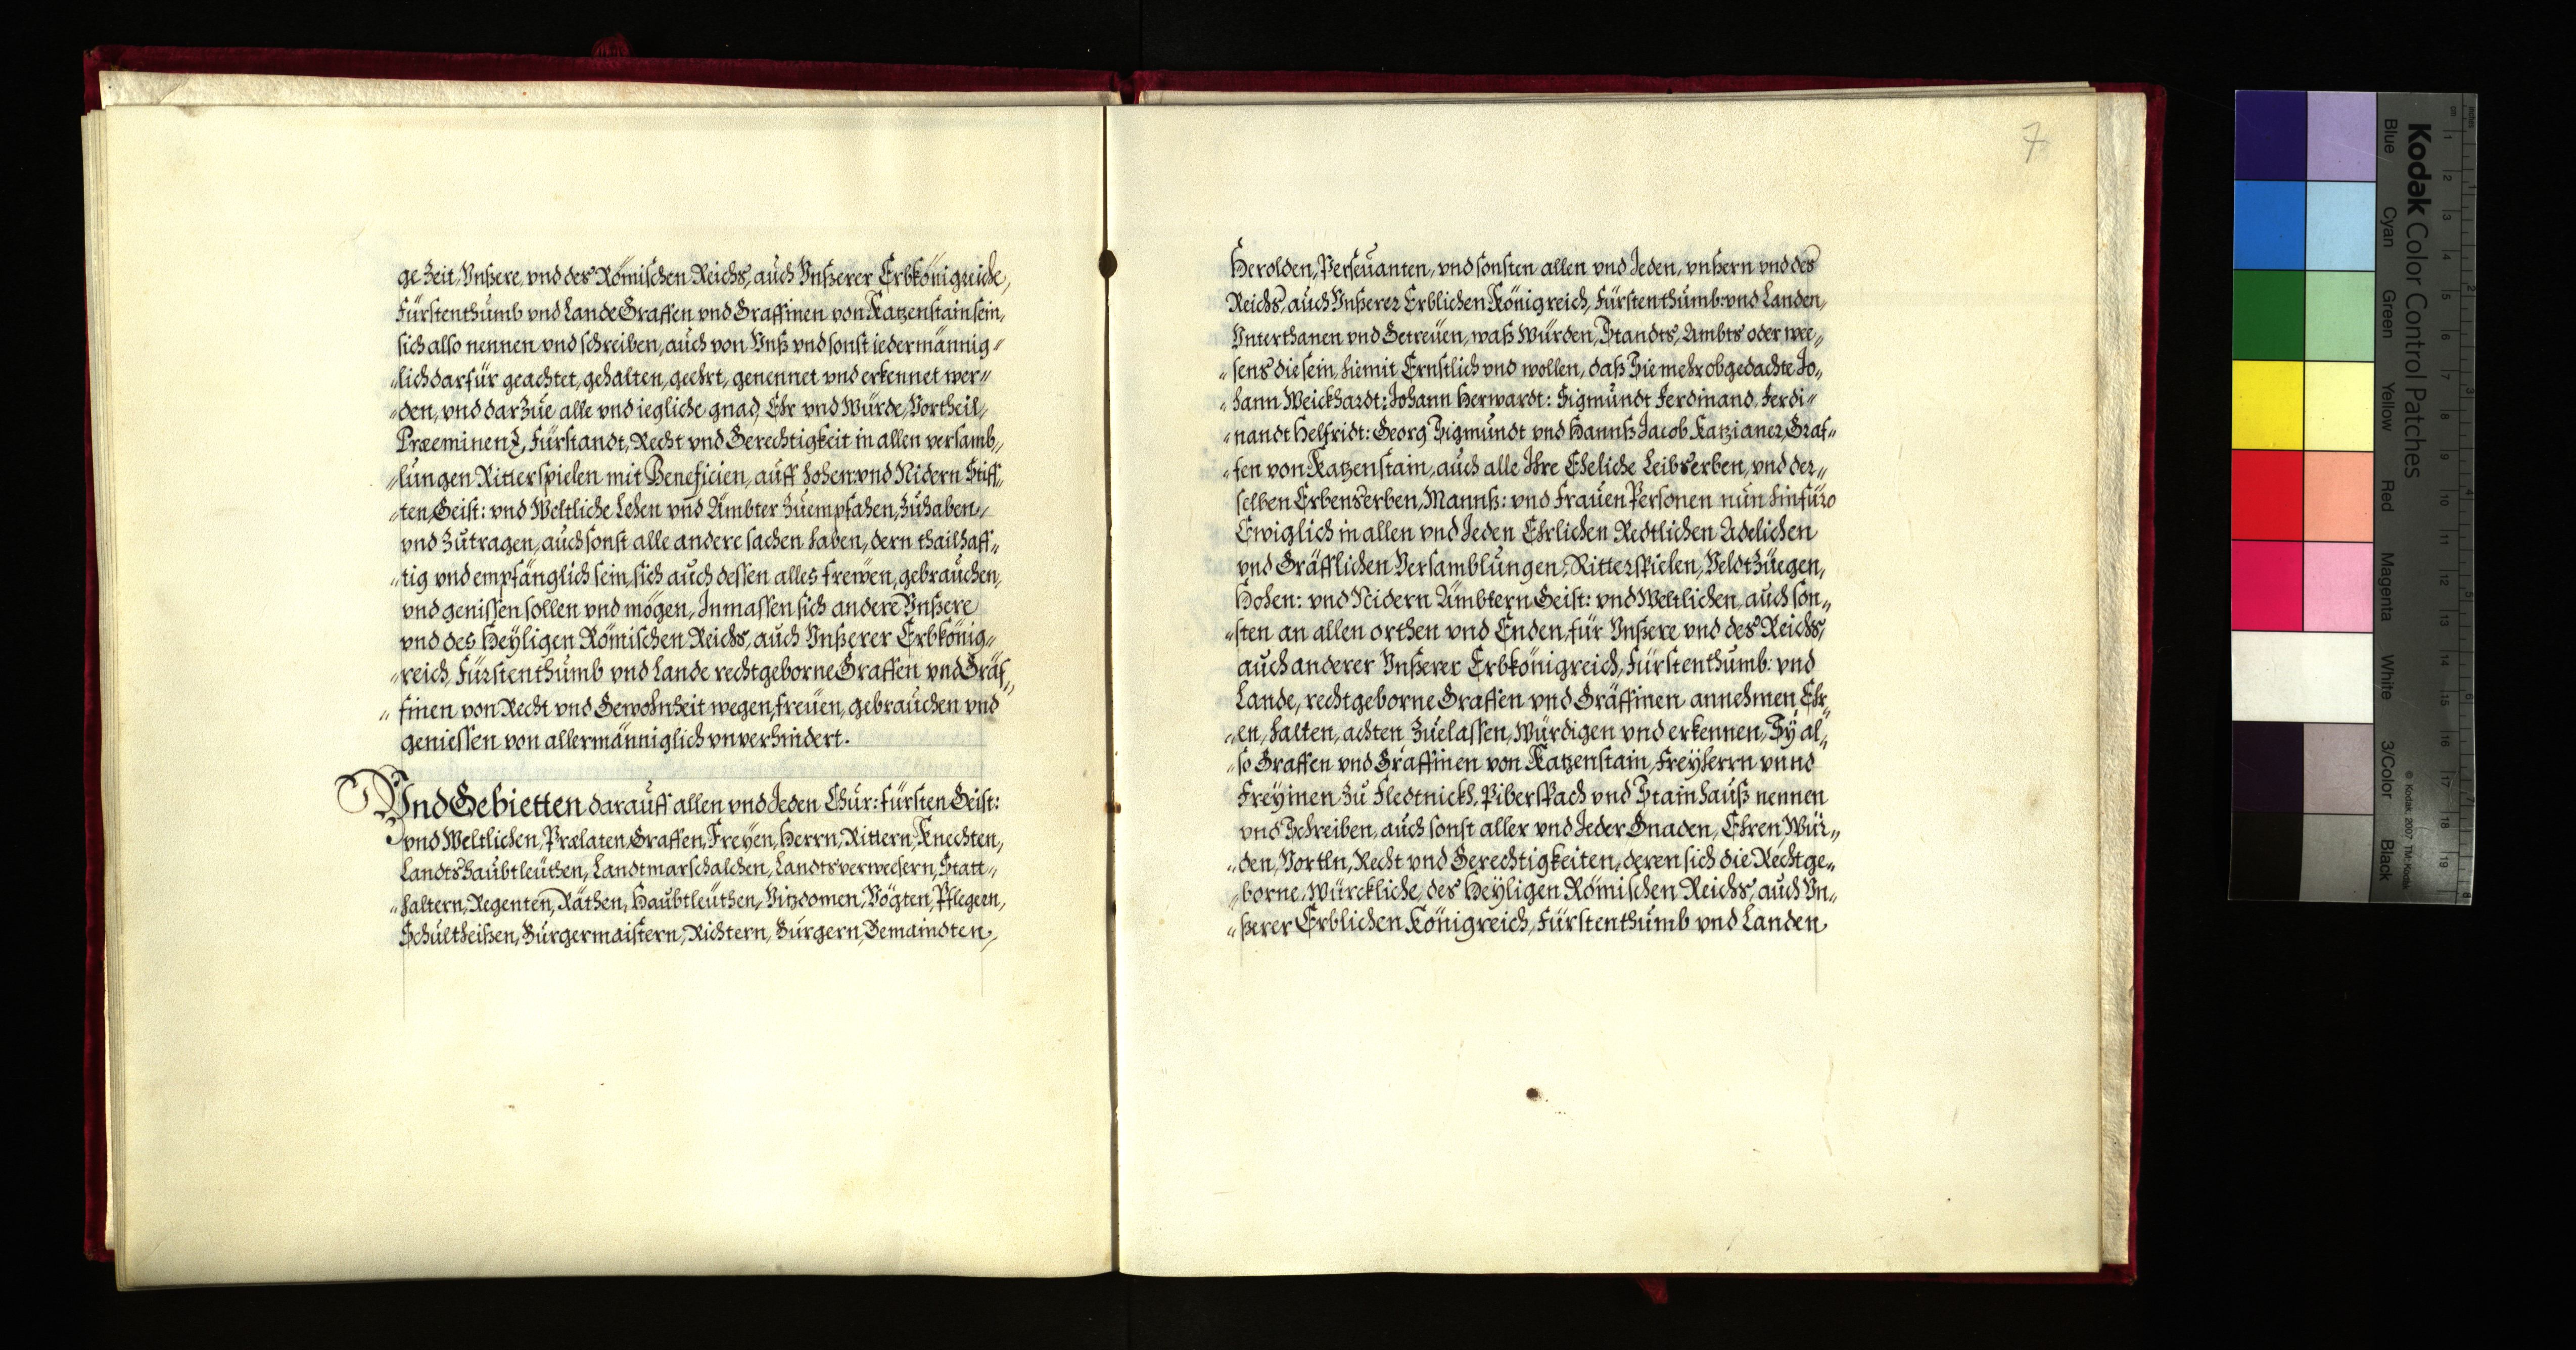 ge Zeit, Vnßere, vnd des Römischen Reichs, auch Vnßerer Erbkönigreiche,
Fürstenthumb vnd Lande Graffen vnd Graffinen von Katzenstain sein,
sich also nennen vnd schreiben, auch von Vnß vnd sonst iedermännig„
„lich darfür geachtet, gehalten, geehrt, genennet vnd erkennet wer„
„den, vnd darzue alle vnd iegliche gnad, Ehr vnd Würde, Vortheil,
Præeminenz, Fürstandt, Recht vnd Gerechtigkeit in allen versamb„
„lungen Ritterspielen mit Beneficien, auff hohen: vnd Nidern Stiff„
„ten, Geist: vnd Weltliche Lehen vnd Ämbter Zuempfahen, Zuhaben,
vnd Zutragen, auch sonst alle andere sachen haben, dern thailhaff„
„tig vnd empfänglich sein, sich auch dessen alles frewen, gebrauchen,
vnd genissen sollen vnd mögen, Inmassen sich andere Vnßere
vnd des Heyligen Römischen Reichs, auch Vnßerer Erbkönig„
„reich, Fürstenthumb vnd Lande rechtgeborne Graffen vnd Gräf„
„finen von Recht vnd Gewohnheit wegen, freuen, gebrauchen vnd
geniessen von allermänniglich vnverhindert.
Vnd Gebietten darauff allen vnd Jeden Chur: Fürsten Geist:
vnd Weltlichen, Prælaten, Graffen, Freyen, Herrn, Rittern, Knechten,
Landtshaubtleuthen, Landtmarschalchen, Landtsverwesern, Statt„
„haltern, Regenten, Räthen, Haubtleuthen, Vitzdomen, Vögten, Pflegern,
Schultheißen, Burgermaistern, Richtern, Burgern, Gemaindten,
7
Herolden, Persevanten, vnd sonsten allen vnd Jeden, vnßern vnd des
Reichs, auch Vnßerer Erblichen Königreich, Fürstenthumb: vnd Landen,
Vnterthanen vnd Getreuen, waß Würden, Standts, Ambts oder wee„
„sens die sein, hiemit Ernstlich vnd wollen, daß Sie mehrobgedachte Jo„
„hann Weickhardt: Johann Herwardt: Sigmundt Ferdinand, Ferdi„
„nandt Helfridt: Georg Sigmundt vnd Hannß Jacob Katzianer, Graf„
„fen von Katzenstain, auch alle Ihre Eheliche Leibserben, vnd der„
selben Erbenserben, Mannß: vnd Frauen Personen nun hinfüro
Ewiglich in allen vnd Jeden Ehrlichen Redtlichen Adelichen
vnd Gräfflichen Versamblungen, Ritterspielen, Veldtzüegen,
Hohen: vnd Nidern Ämbtern Geist: vnd Weltlichen, auch son„
„sten an allen orthen vnd Enden, für Vnßere vnd des Reichs,
auch anderer Vnßerer Erbkönigreich, Fürstenthumb: vnd
Lande, rechtgeborne Graffen vnd Gräffinen annehmen, Ehr„
„en, halten, achten Zuelassen, Würdigen vnd erkennen, Sy al„
„so Graffen vnd Graffinen von Katzenstain, Freyherrn vnnd
Freyinen Zu Fledtnickh, Piberspach vnd Stainhauß nennen
vnd Schreiben, auch sonst aller vnd Jeder Gnaden, Ehren, Wür„
„den, Vortln, Recht vnd Gerechtigkeiten, deren sich die Rechtge„
„borne, Würckliche, des Heyligen Römischen Reichs, auch Vn„
„ßerer Erblichen Königreich, Fürstenthumb vnd Landen
Kodak Color Control Patches
Blue Cyan Green Yellow Red Magenta White 3/Color Black